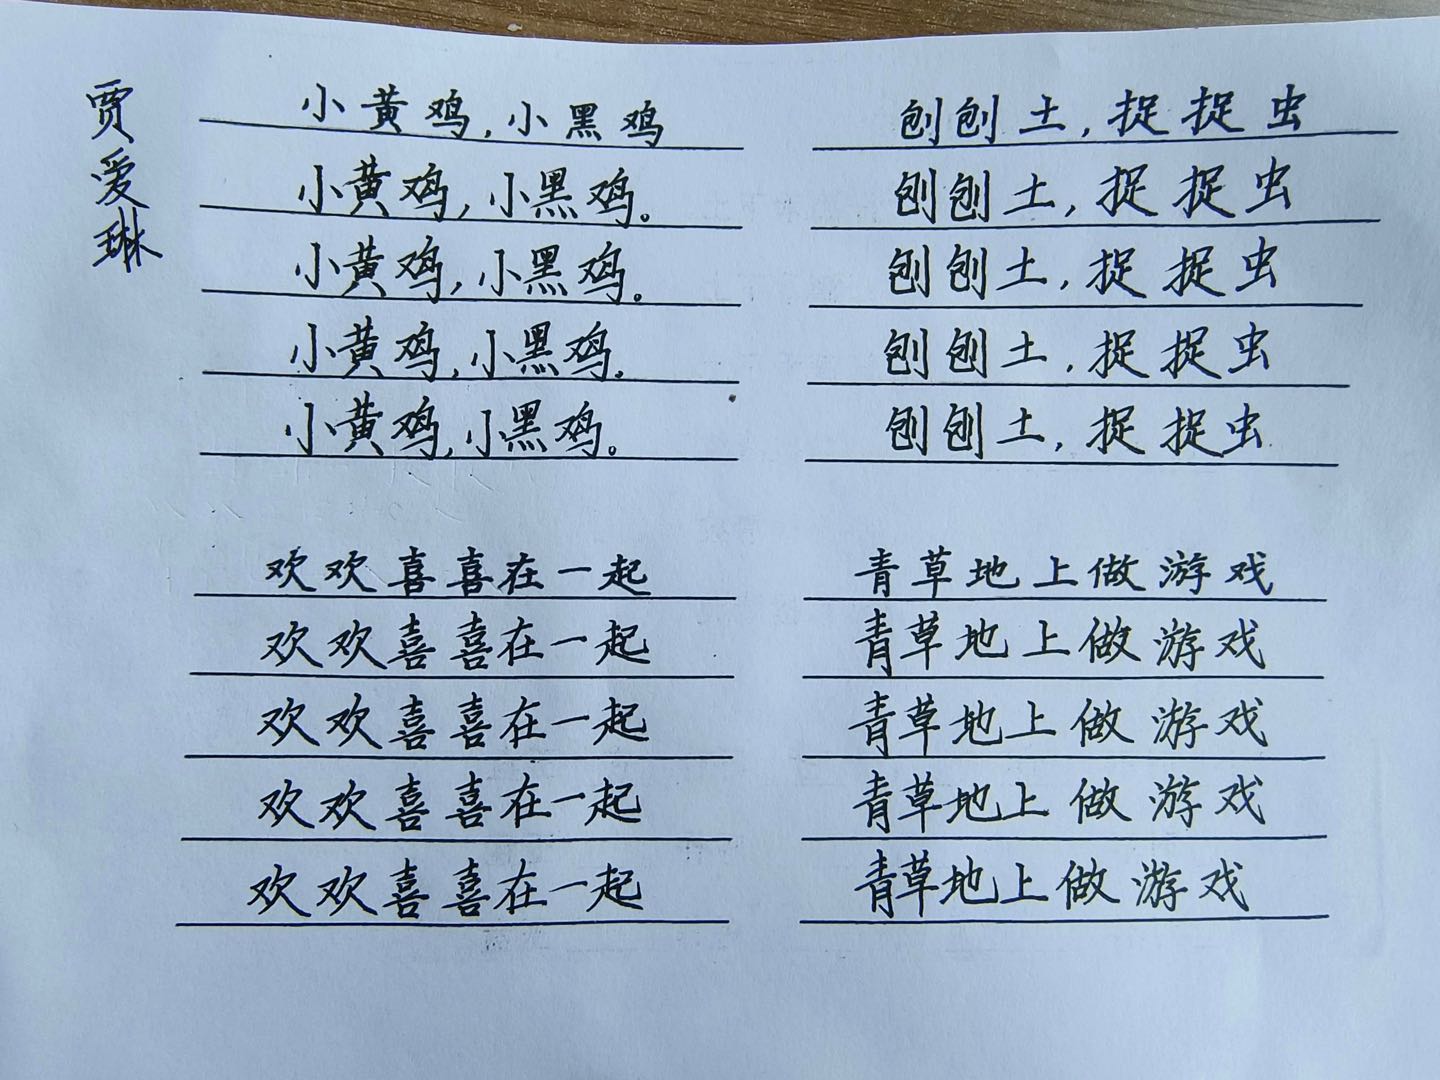 贾爱琳
小黄鸡,小黑鸡
小黄鸡,小黑鸡。
小黄鸡,小黑鸡。
小黄鸡,小黑鸡.
小黄鸡,小黑鸡。
刨刨土,捉捉虫
刨刨土,捉捉虫
刨刨土,捉捉虫
刨刨土,捉捉虫
刨刨土,捉捉虫
欢欢喜喜在一起
欢欢喜喜在一起
欢欢喜喜在一起
欢欢喜喜在一起
欢欢喜喜在一起
青草地上做游戏
青草地上做游戏
青草地上做游戏
青草地上做游戏
青草地上做游戏